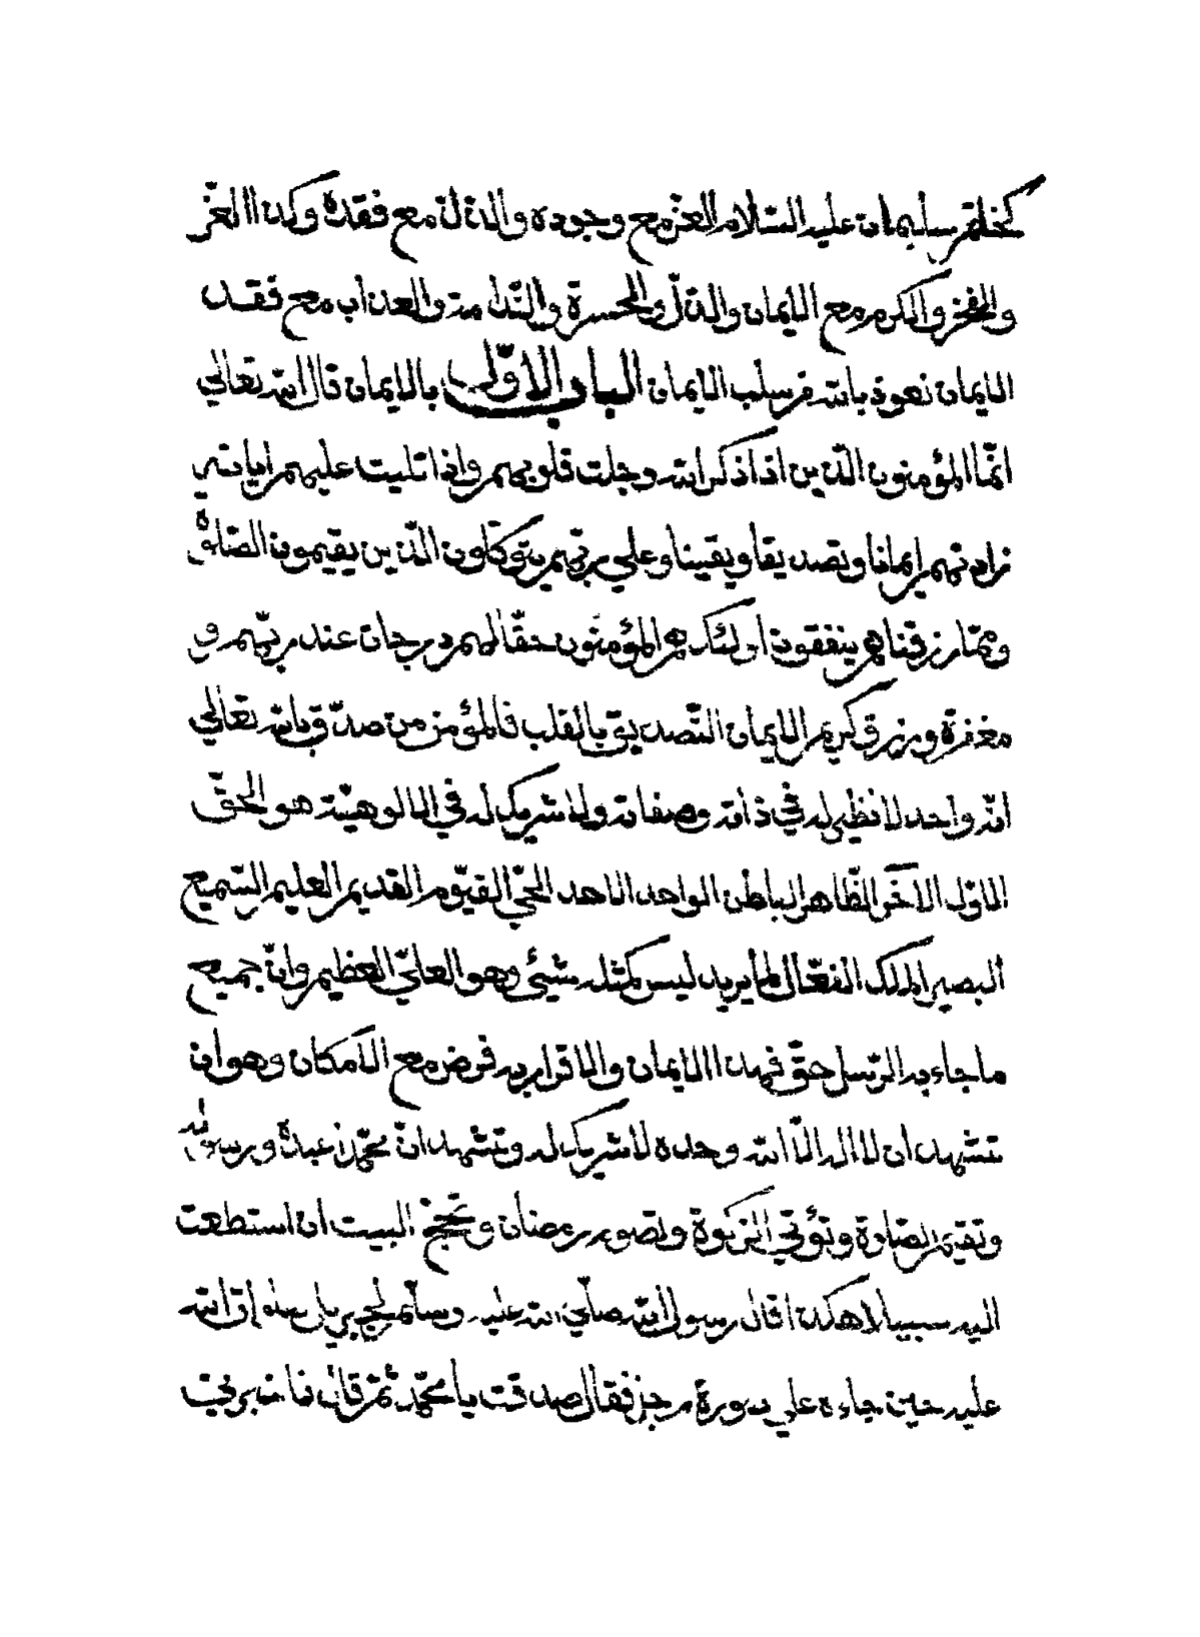 كخاتم سليمان عليه السّلام العزّ مع وجوده والذلّ مع فقده وكذا العزّ
والفخر والكرم مع الايمان والذلّ والحسرة والنّدامة والعذاب مع فقد
الايمان نعوذ بالله من سلب الايمان الباب الاوّل بالايمان قال الله تعالي
انّما المؤمنون الّذين اذا ذكر الله وجلت قلوبهم واذا تليت عليهم اياته
زادتهم ايمانا وتصديقا ويقينا وعلي ربّهم يتوكّلون الّذين يقيمون الصّلوة
وممّا رزقناهم ينفقون اولئك هم المؤمنون حقّا لهم درجات عند ربّهم و
مغفرة ورزق كريم الايمان التّصديق بالقلب فالمؤمن من صدّق بالله تعالي
انّه واحد لا نظير له في ذاته وصفاته ولا شريك له في الالوهيّة هو الحقّ
الاوّل الآخر الظّاهر الباطن الواحد الاحد الحيّ القيّوم القديم العليم السّميع
البصير الملك الفعّال لما يريد ليس كمثله شيئ وهو العليّ العظيم وانّ جميع
ما جاء به الرّسل حقّ فهذا الايمان والاقرار به فرض مع الامكان وهو ان
تشهد ان لا اله الّا الله وحده لا شريك له وتشهد انّ محمّدا عبده ورسوله
وتقيم الصّلوة وتؤتي الزكوة وتصوم رمضان وتحجّ البيت ان استطعت
اليه سبيلا هكذا قال رسول الله صلّي الله عليه وسلّم لجبريل سلام الله
عليه حين جاءه علي صورة رجل فقال صدقت يا محمّد ثمّ قال فاخبرني